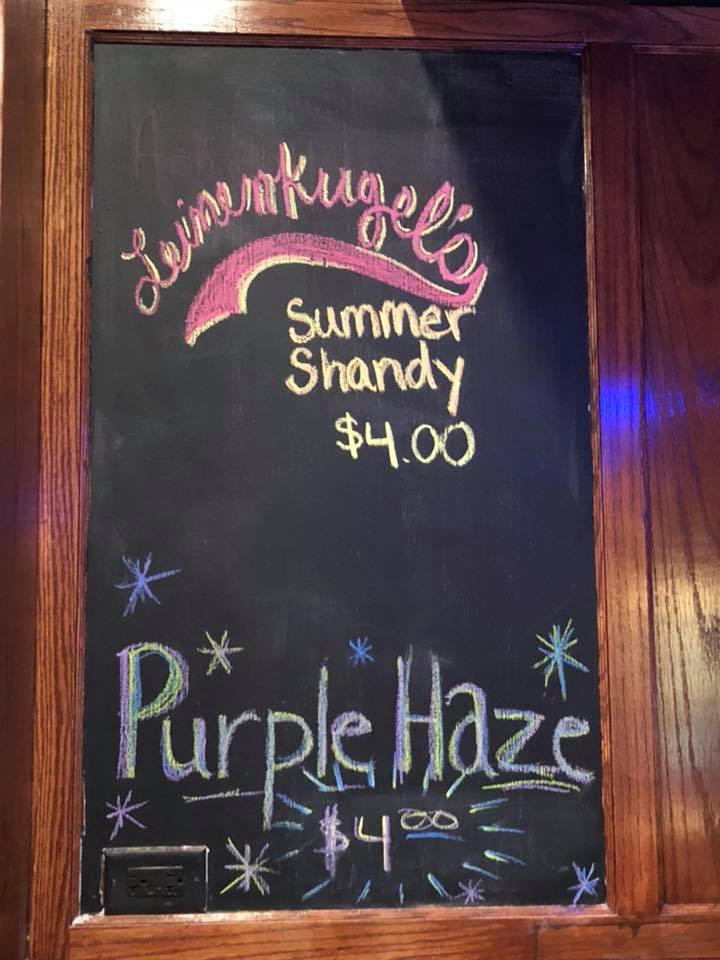 Leinenkugel's
Summer
Shandy
$4.00
Purple Haze
$4.00